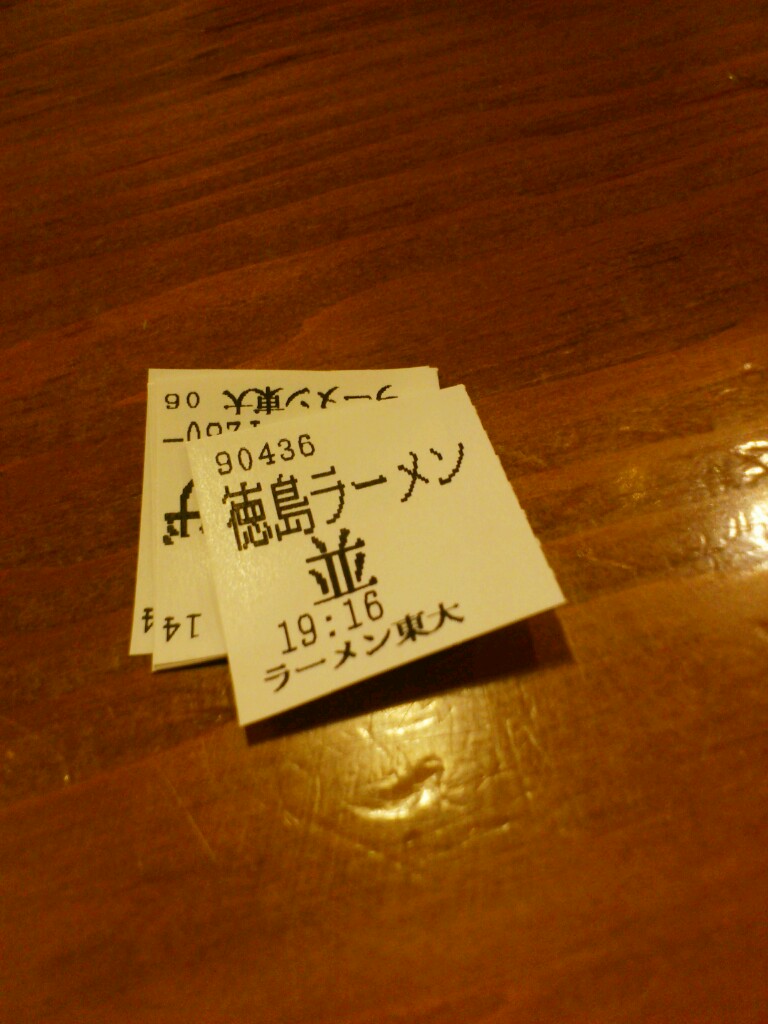 90436
徳島ラーメン
並
19:16
ラーメン東大
ラーメン東大 06
14